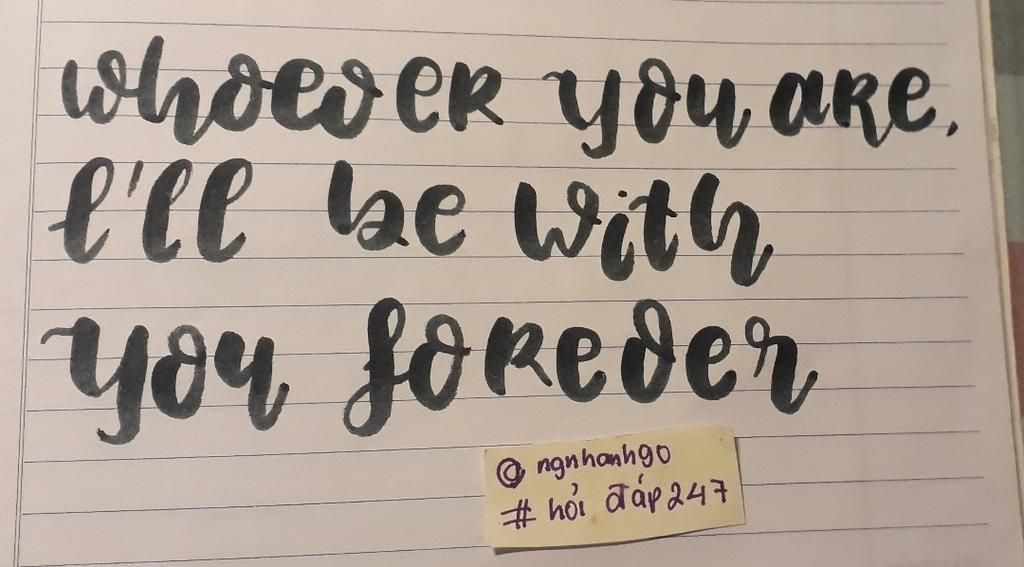 whoever you are,
I'll be with
you forever
@ ngnhanhgo
# hỏi đáp247